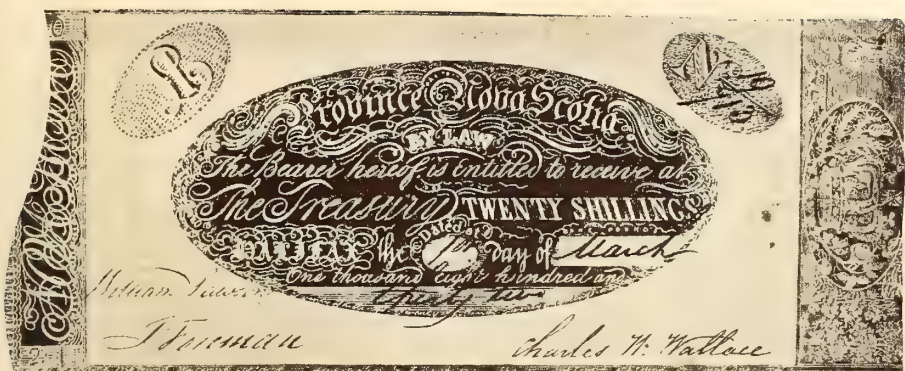 £1
No
Province Nova Scotia
BY LAW
The Bearer hereof is entitled to receive at
The Treasury TWENTY SHILLINGS
HALIFAX the Dated 1st day of March
One thousand Eight hundred and
Thirty two
William
J Forman
Charles W. Wallace